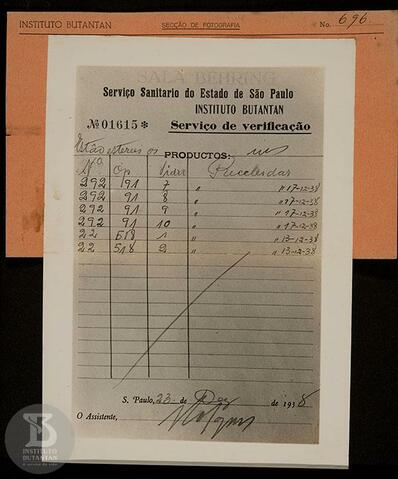 INSTITUTO BUTANTAN SECÇÃO DE FOTOGRAFIA No. 696.
SALA BEHRING
Serviço Sanitario do Estado de São Paulo
INSTITUTO BUTANTAN
№ 01615 * Serviço de verificação
Estão estereis os
PRODUCTOS:
Nº Op
292 91 7 " " 17-12-38
292 91 8 " " 17-12-38
292 91 9 " " 17-12-38
292 91 10 " " 17-12-38
22 518 1 " " 13-12-38
22 518 2 " " 13-12-38
S. Paulo, 23 de Dez de 1938
O Assistente,
INSTITUTO
BUTANTAN
A serviço da vida